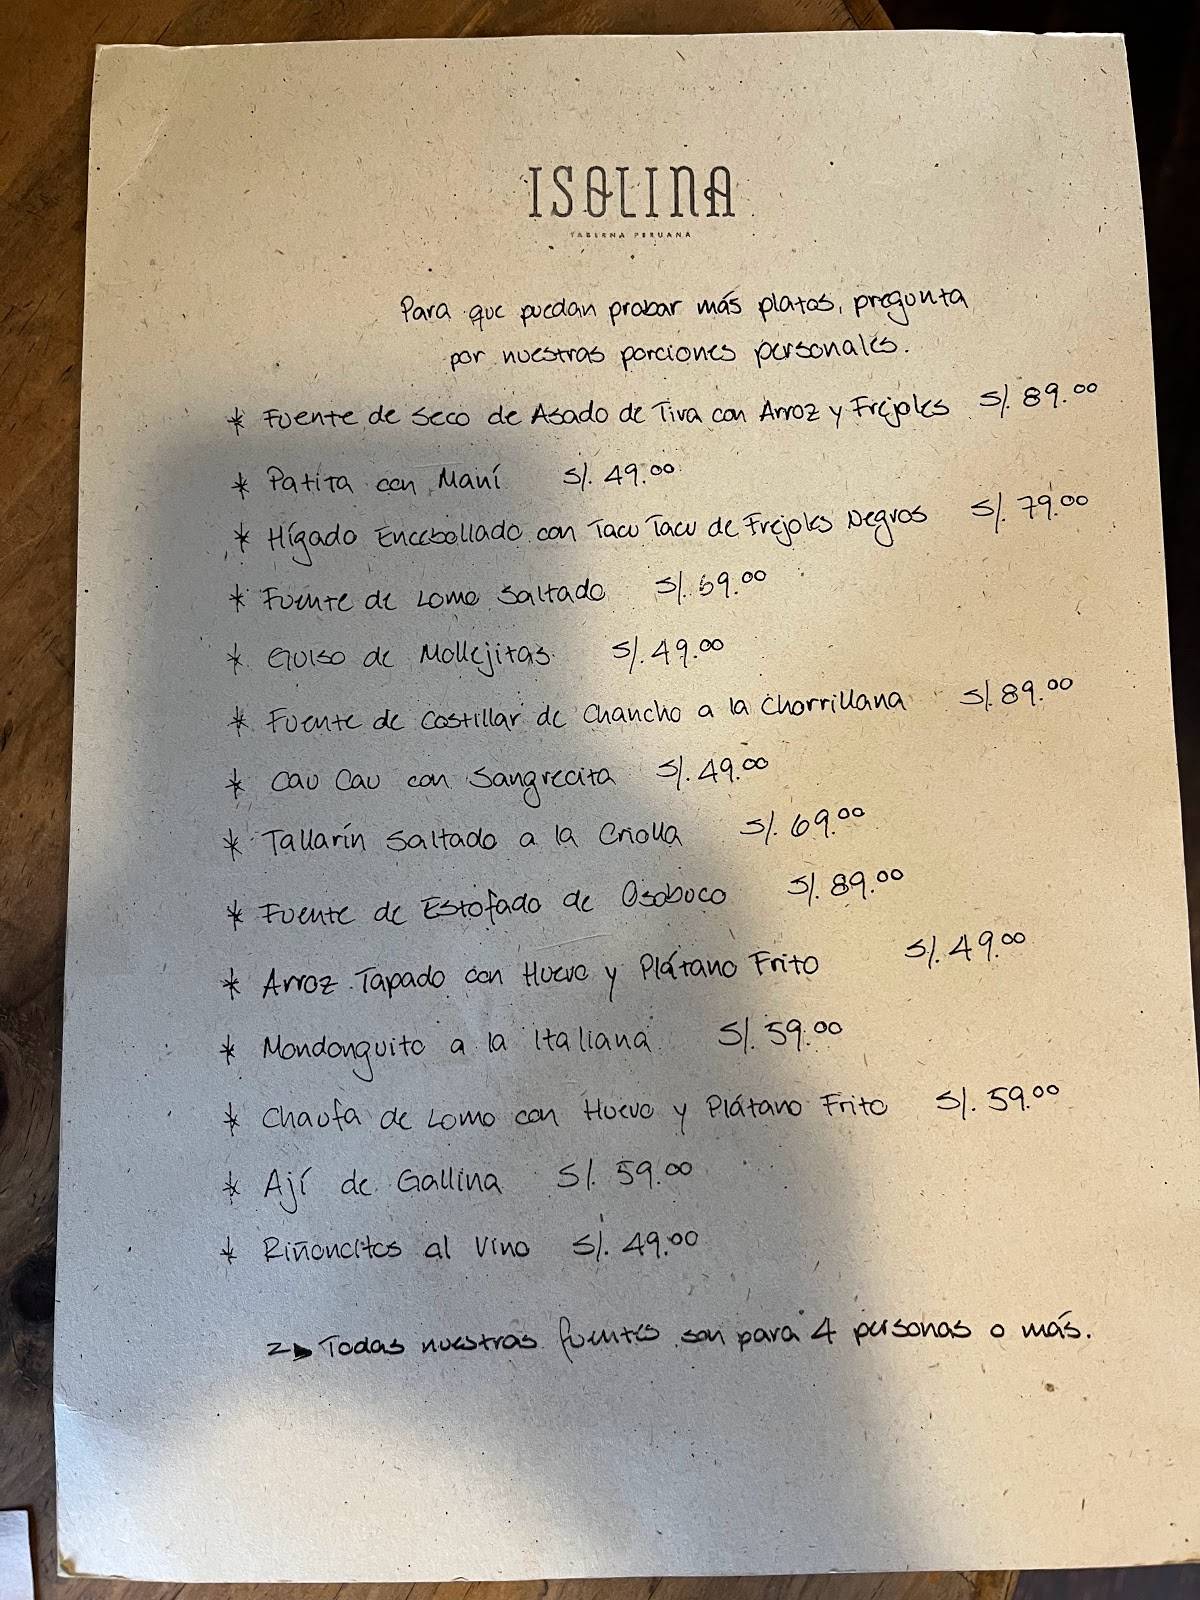 ISOLINA
TABERNA PERUANA
Para que puedan probar más platos, pregunta
por nuestras porciones personales.
* Fuente de Seco de Asado de Tira con Arroz y Frejoles S/. 89.00
* Patita con Maní S/. 49.00
* Hígado Encebollado con Tacu Tacu de Frejoles Negros S/. 79.00
* Fuente de Lomo Saltado S/. 69.00
* Guiso de Mollejitas S/. 49.00
* Fuente de Costillar de Chancho a la Chorrillana S/. 89.00
* Cau Cau con Sangrecita S/. 49.00
* Tallarín Saltado a la Criolla S/. 69.00
* Fuente de Estofado de Osobuco S/. 89.00
* Arroz Tapado con Huevo y Plátano Frito S/. 49.00
* Mondonguito a la Italiana S/. 59.00
* Chaufa de Lomo con Huevo y Plátano Frito S/. 59.00
* Ají de Gallina S/. 59.00
* Riñoncitos al Vino S/. 49.00
Todas nuestras fuentes son para 4 personas o más.